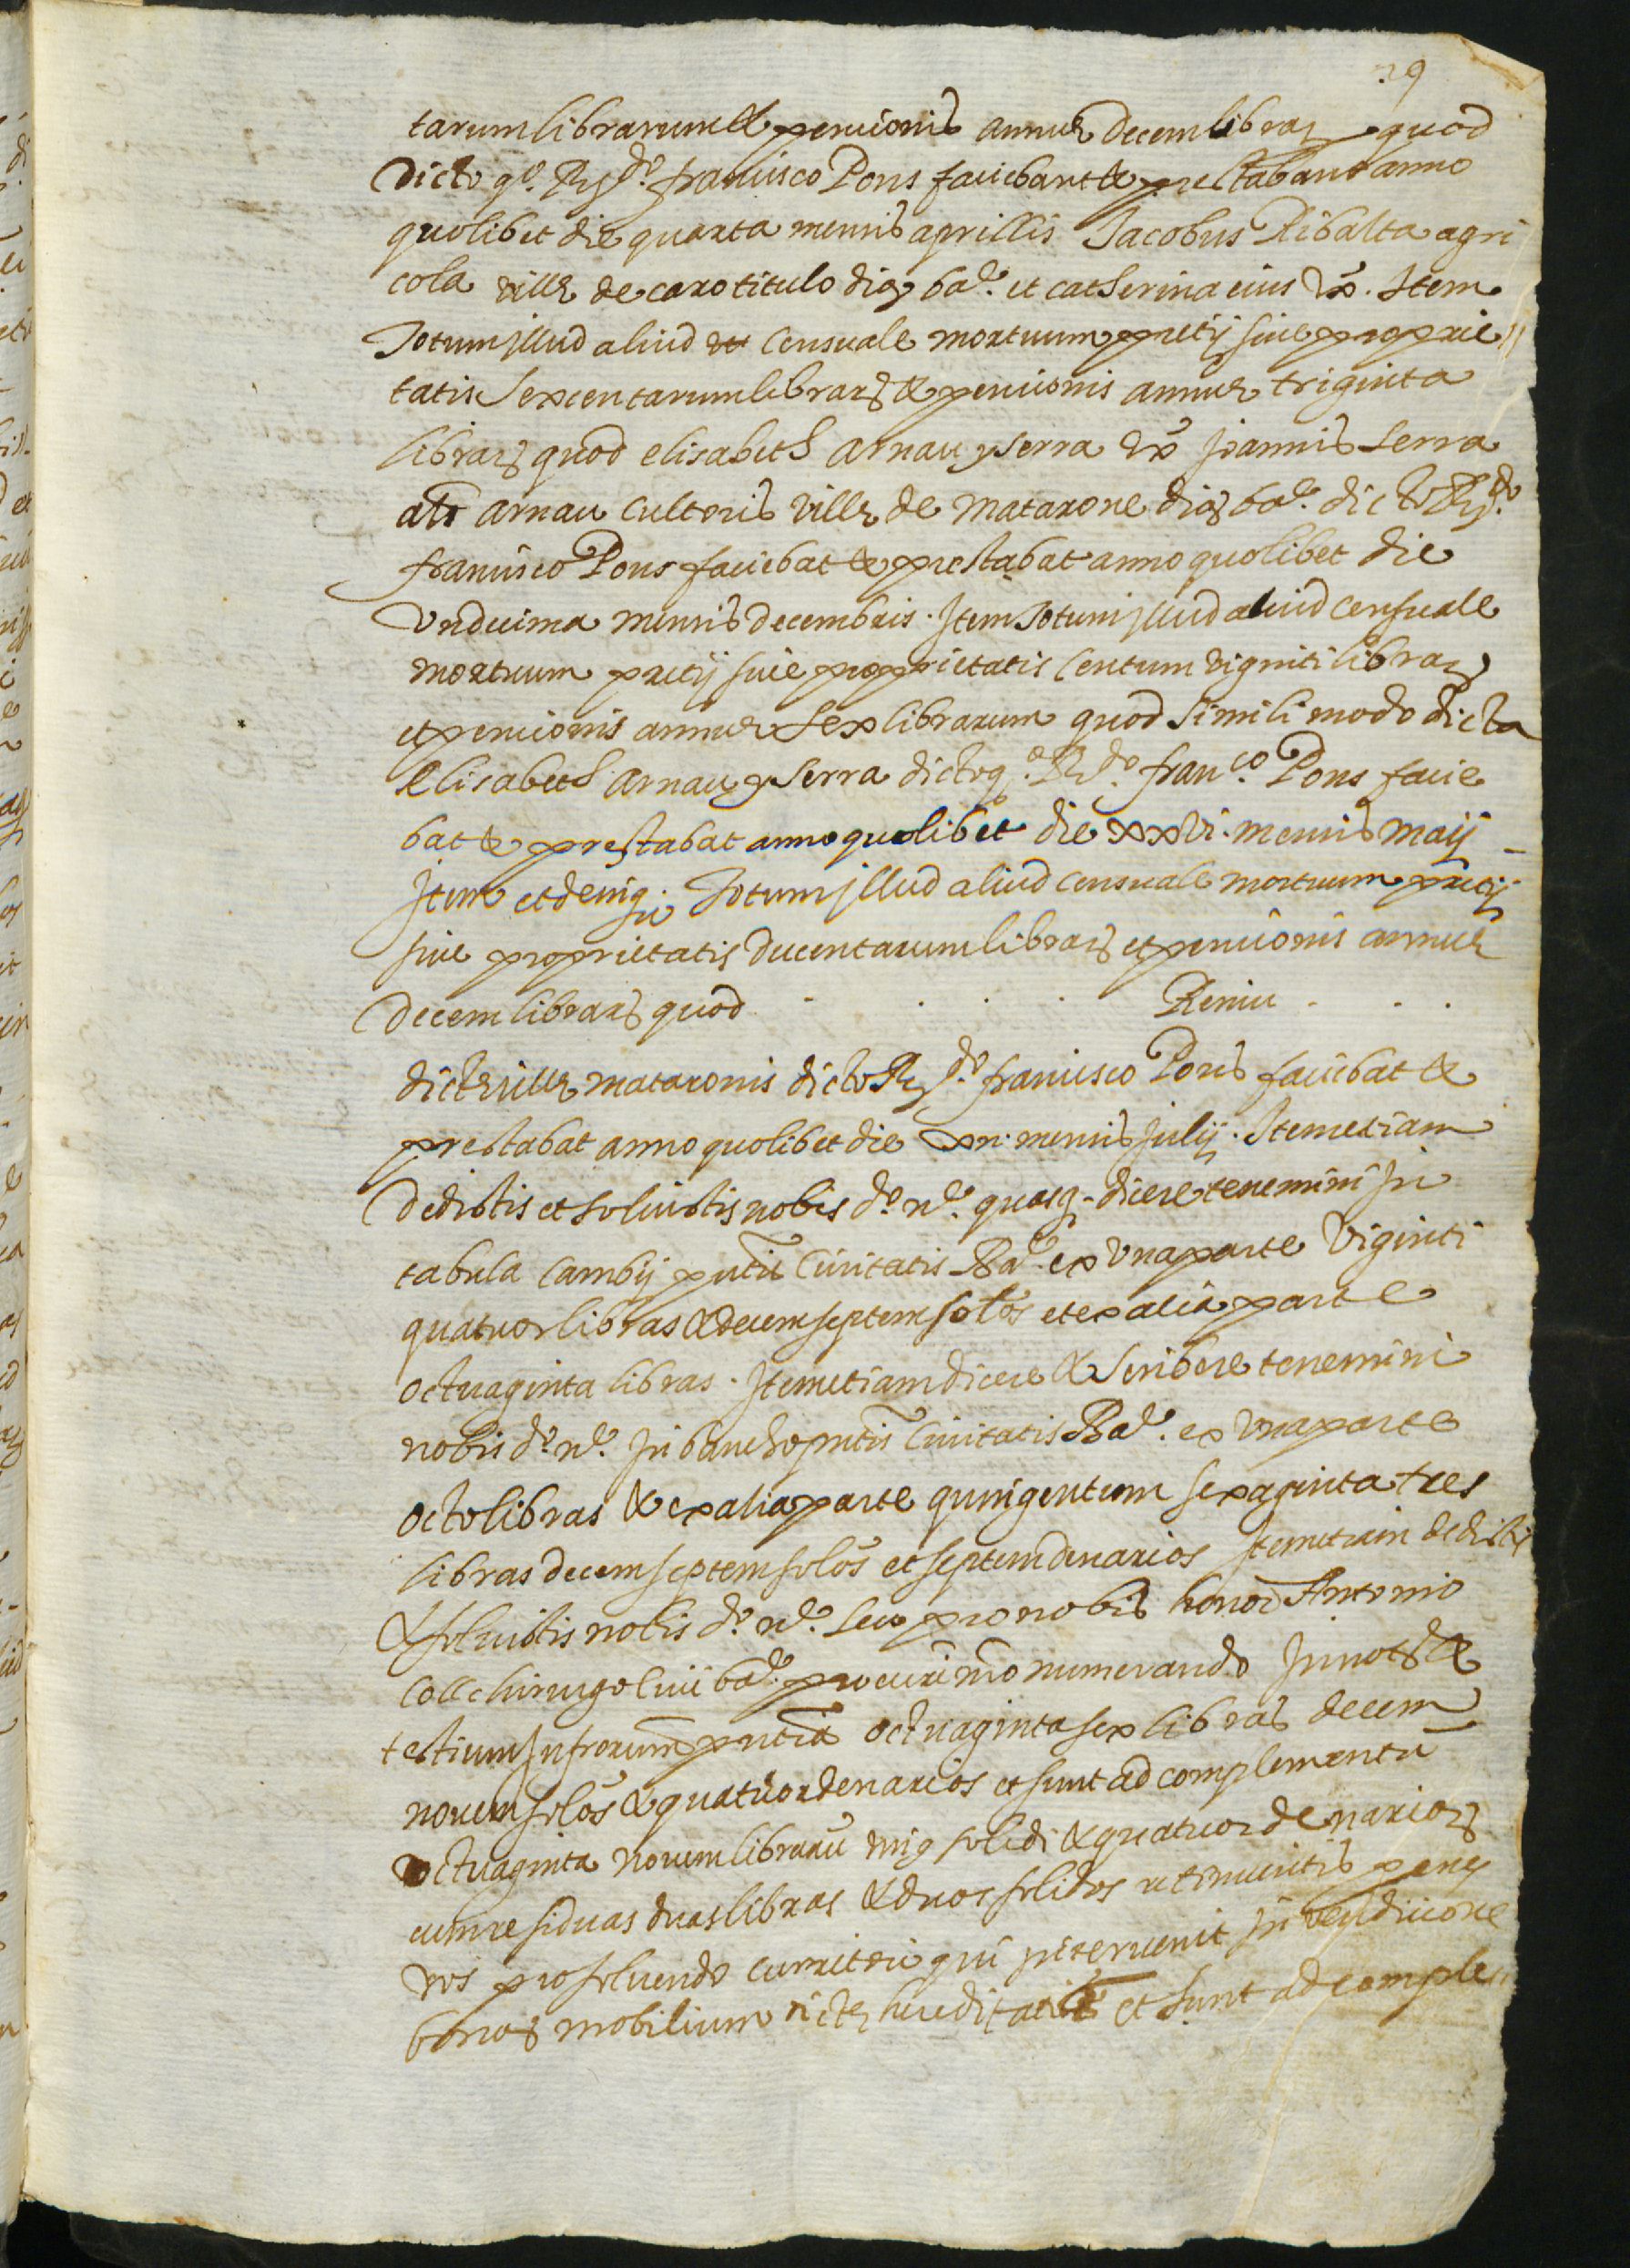 29
tarum librarum & pencionis annue decem librar quod
Dicto qº. Rdº. francisco Pons faciebant & prestabant anno
quolibet die quarta mensis aprillis Jacobus Ribalta agri
cola ville de caro titulo dioc baª. et catherina eius vx. Item
Totum illud aliud et Censuale mortuum precij siue proprie
tatis sexcentarum librar & pencionis annue triginta
librar quod elisabeth Arnau y serra vx Joannis serra
als arnau cultoris ville de Matarone dioc baª. dicto Rdº.
francisco Pons faciebat & prestabat anno quolibet die
Vndecima mensis decembris. Item Totum illud aliud censuale
mortuum precij siue proprietatis Centum viginti librar
et pencionis annue sex librarum quod simili modo dicta
Elisabeth Arnau y serra dicto qº. Rdº. franco. Pons facie
bat & prestabat anno quolibet die xxvi. mensis maij
Item et deniq; Totum illud aliud censuale mortuum precij
siue proprietatis Ducentarum librar et pencionis annue
Decem librar quod . . . . Reniu . . .
dicte ville mataronis dicto Rdº. francisco Pons faciebat &
prestabat anno quolibet die mensis Julij. Item etiam
Dedistis et soluistis nobis dº. nª. quasq. dicere tenemini In
tabula Cambij pntis Ciuitatis Baª. ex vna parte Viginti
quatuor libras & decem septem solos et ex alia parte
octuaginta libras. Item etiam dicere & scribere tenemini
nobis dº. nª. In bancho pntis Ciuitatis Baª. ex vna parte
octo libras & ex alia parte quingentum sexaginta tres
libras decem septem solos et septem denarios Item etiam dedistis
& soluistis nobis dº. nª. seu pro nobis honor Antonio
Coll chirurgo Ciui baª. procuri mo numerando In not &
testium Infrorum pntia octuaginta sex libras decem
nouem solos & quatuor denarios et sunt ad complementu
octuaginta nouem libraru vniq solidi & quatuor denarior
cum residuas duas libras & duos solidos retinueritis penes
vos pro soluendo curritori qui interuenit In vendicione
bonor mobilium dicte hereditatis et sunt ad comple